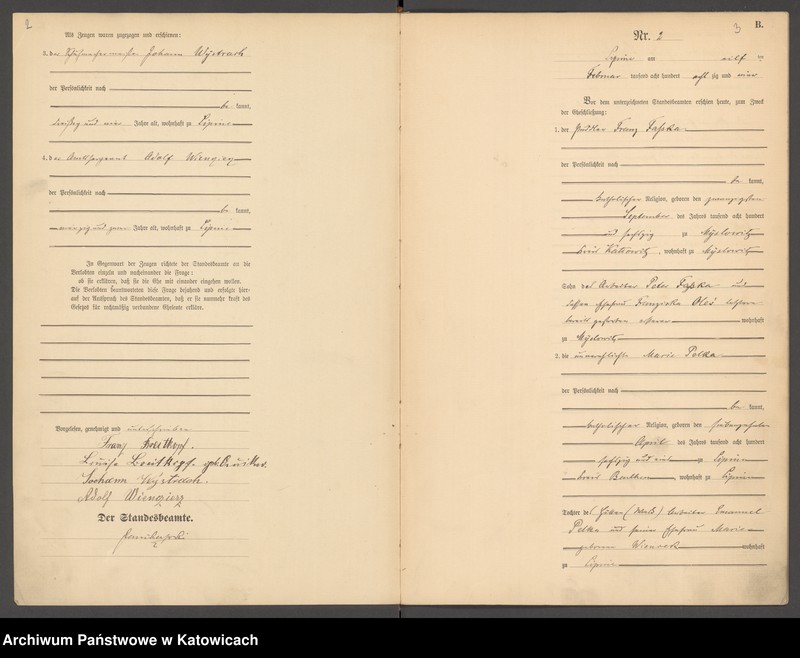 2
Als Zeugen waren zugezogen und erschienen:
3. der Schuhmachermeister Johann Wystrach
der Persönlichkeit nach
be kannt,
dreißig und vier Jahre alt, wohnhaft zu Lipine
4. der Amtssergeant Adolf Wiengierz
der Persönlichkeit nach
be kannt,
vierzig und zwei Jahre alt, wohnhaft zu Lipine
In Gegenwart der Zeugen richtete der Standesbeamte an die
Verlobten einzeln und nacheinander die Frage:
ob sie erklären, daß sie die Ehe mit einander eingehen wollen.
Die Verlobten beantworteten diese Frage bejahend und erfolgte hier-
auf der Ausspruch des Standesbeamten, daß er sie nunmehr kraft des
Gesetzes für rechtmäßig verbundene Eheleute erkläre.
Vorgelesen, genehmigt und unterschrieben
Franz Breitkopf.
Louise Breitkopf geb.
Johann Wystrach.
Adolf Wiengierz
Der Standesbeamte.
3
B.
Nr. 2
Lipine am eilf ten
Februar tausend acht hundert acht zig und vier
Vor dem unterzeichneten Standesbeamten erschienen heute, zum Zweck
der Eheschließung:
1. der Puddler Franz
der Persönlichkeit nach
be kannt,
katholischer Religion, geboren den
September des Jahres tausend acht hundert
und sechzig zu Myslowitz
Kreis Kattowitz, wohnhaft zu Myslowitz
Sohn des Arbeiter Peter und
dessen Ehefrau Franziska Oles letztere
bereits gestorben ersterer wohnhaft
zu Myslowitz
2. die unverehelichte Marie Pelka
der Persönlichkeit nach
be kannt,
katholischer Religion, geboren den siebenzehnten
April des Jahres tausend acht hundert
sechzig und zu Lipine
Kreis Beuthen, wohnhaft zu Lipine
Tochter des Arbeiter Emanuel
Pelka und seiner Ehefrau Marie
geborene wohnhaft
zu Lipine
Archiwum Państwowe w Katowicach